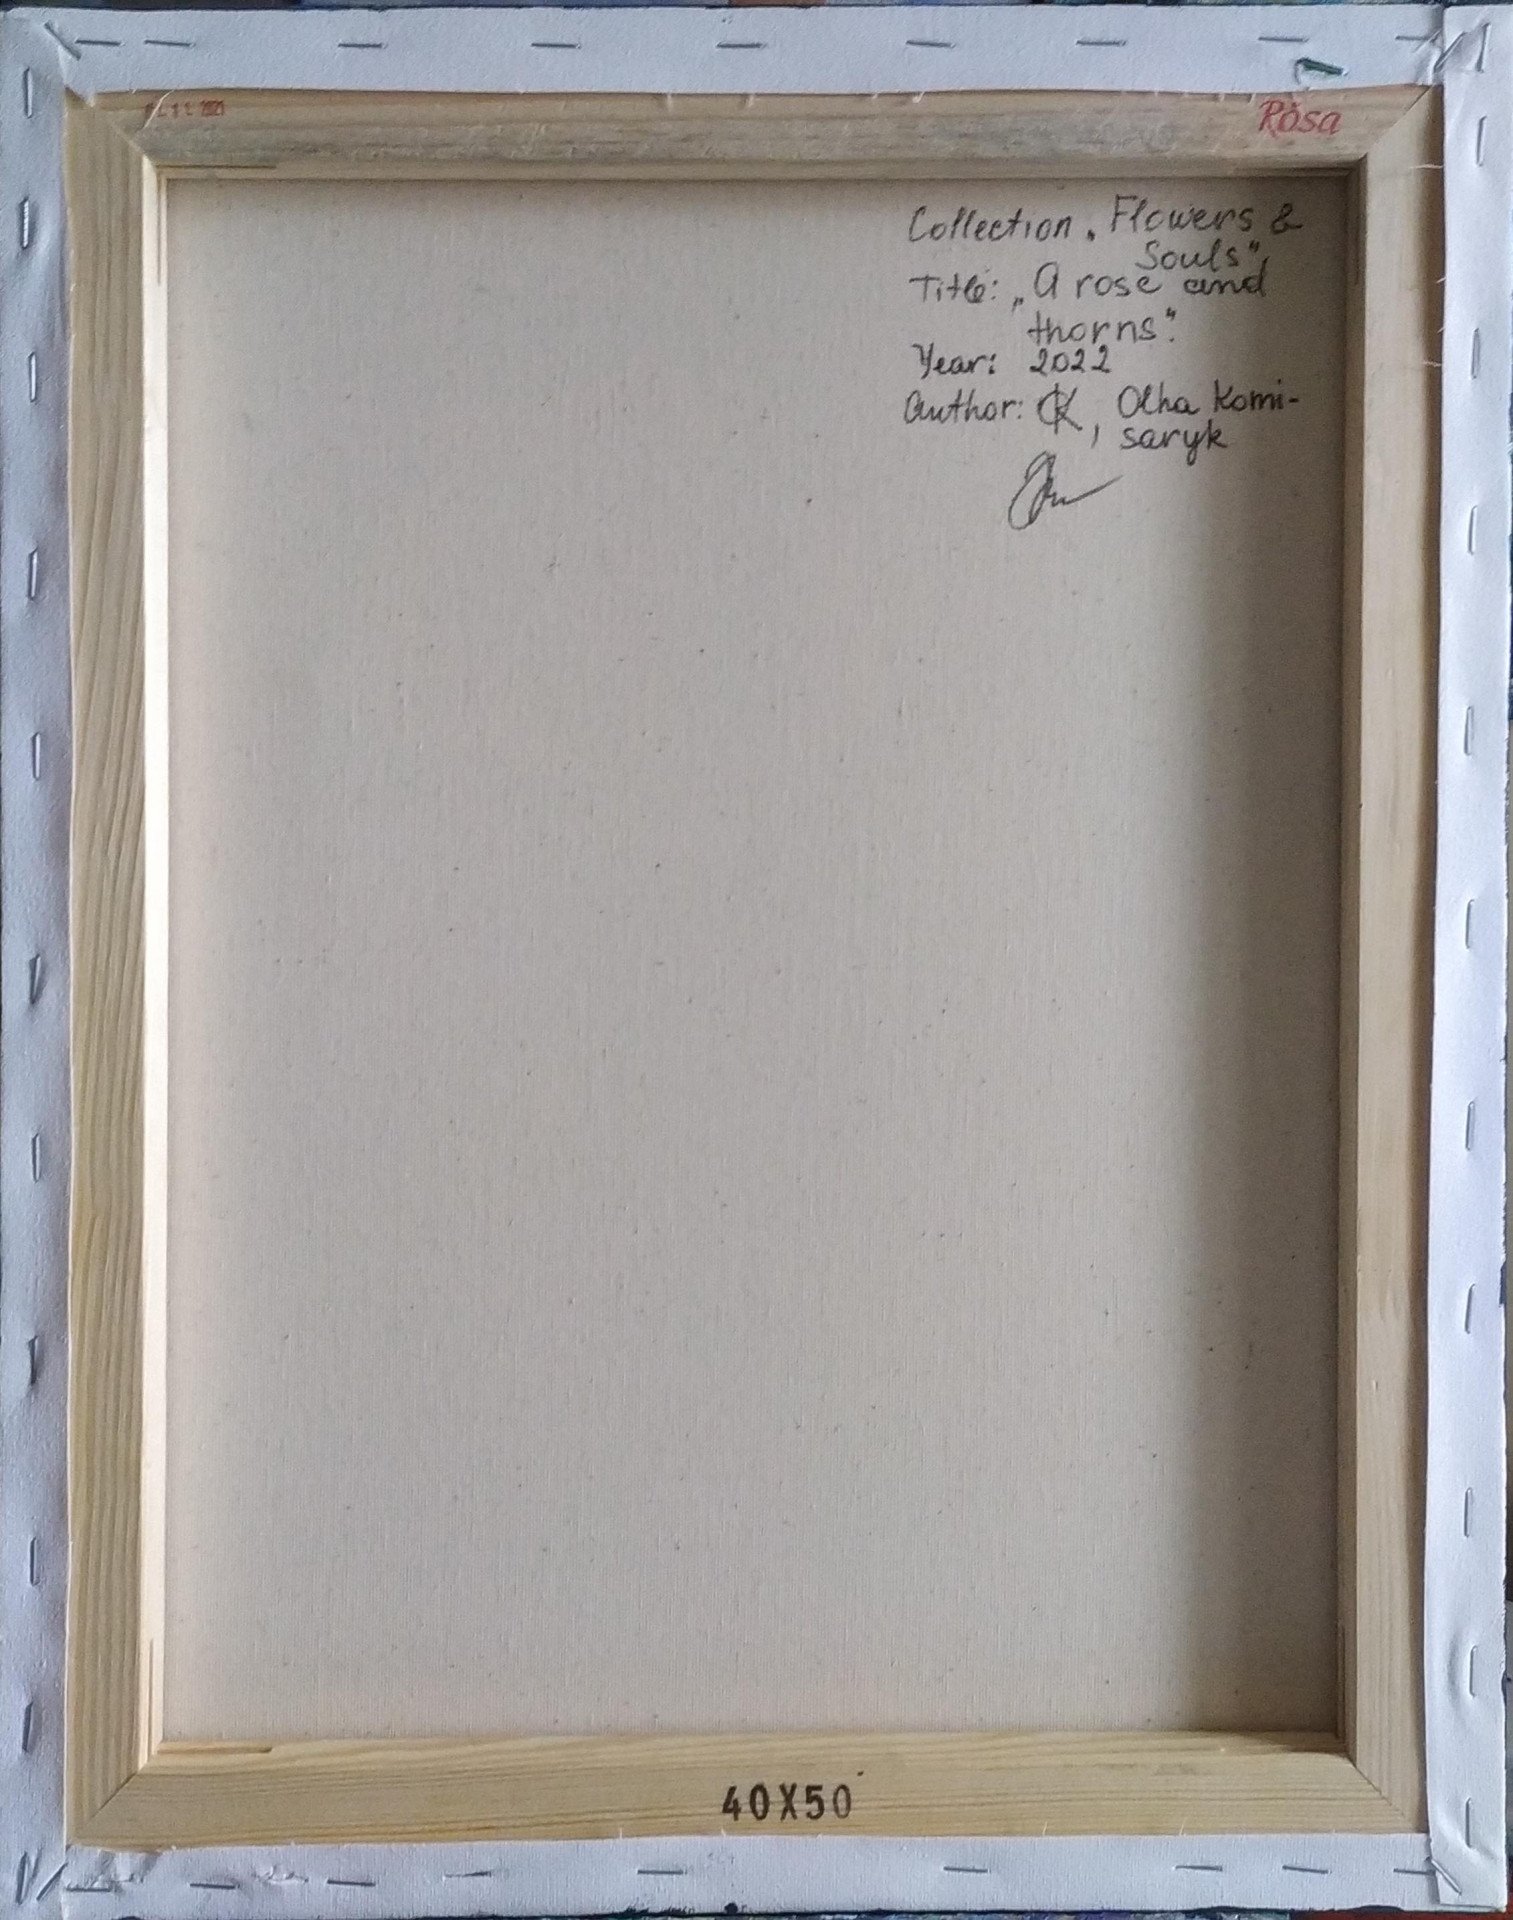 2021
Rosa
Collection „Flowers &
Souls“,
Title: „A rose and
thorns“.
Year: 2022
Author: OK, Olha Komi-
saryk
40X50